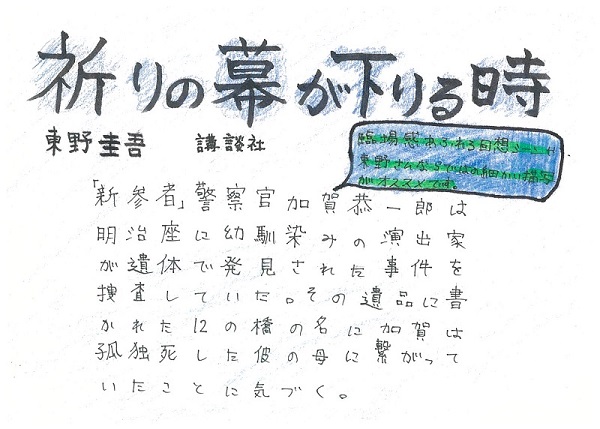 祈りの幕が下りる時
東野圭吾 講談社
臨場感あふれる回想シーンや
東野さんならではの細かい描写
がオススメです。
「新参者」警察官加賀恭一郎は
明治座に幼馴染みの演出家
が遺体で発見された事件を
捜査していた。その遺品に書
かれた12の橋の名に加賀は
孤独死した彼の母に繋がって
いたことに気づく。